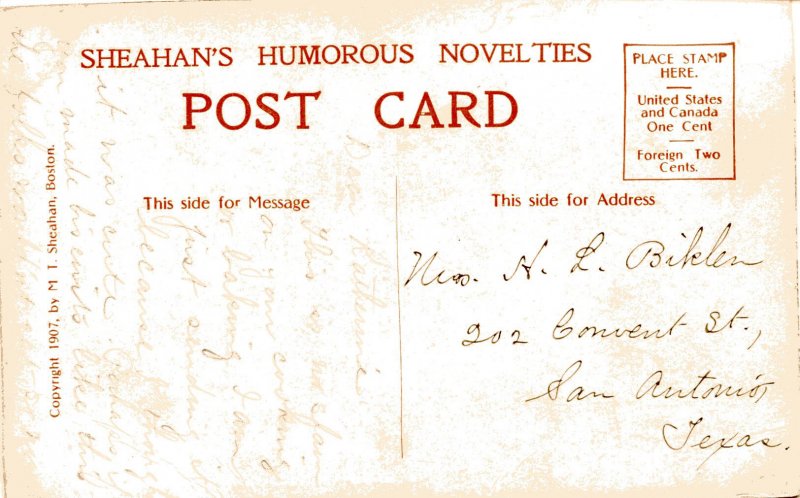 SHEAHAN'S HUMOROUS NOVELTIES
POST CARD
PLACE STAMP
HERE.
United States
and Canada
One Cent
Foreign Two
Cents.
This side for Message
This side for Address
Copyright 1907, by M T. Sheahan, Boston.
Dear Katherine
This is no slam
on your cooking
or baking I am
just sending it
because I
it was cute.
made biscuits like this
the
H. L. Biklen
202 Convent St.,
San Antonio,
Texas.